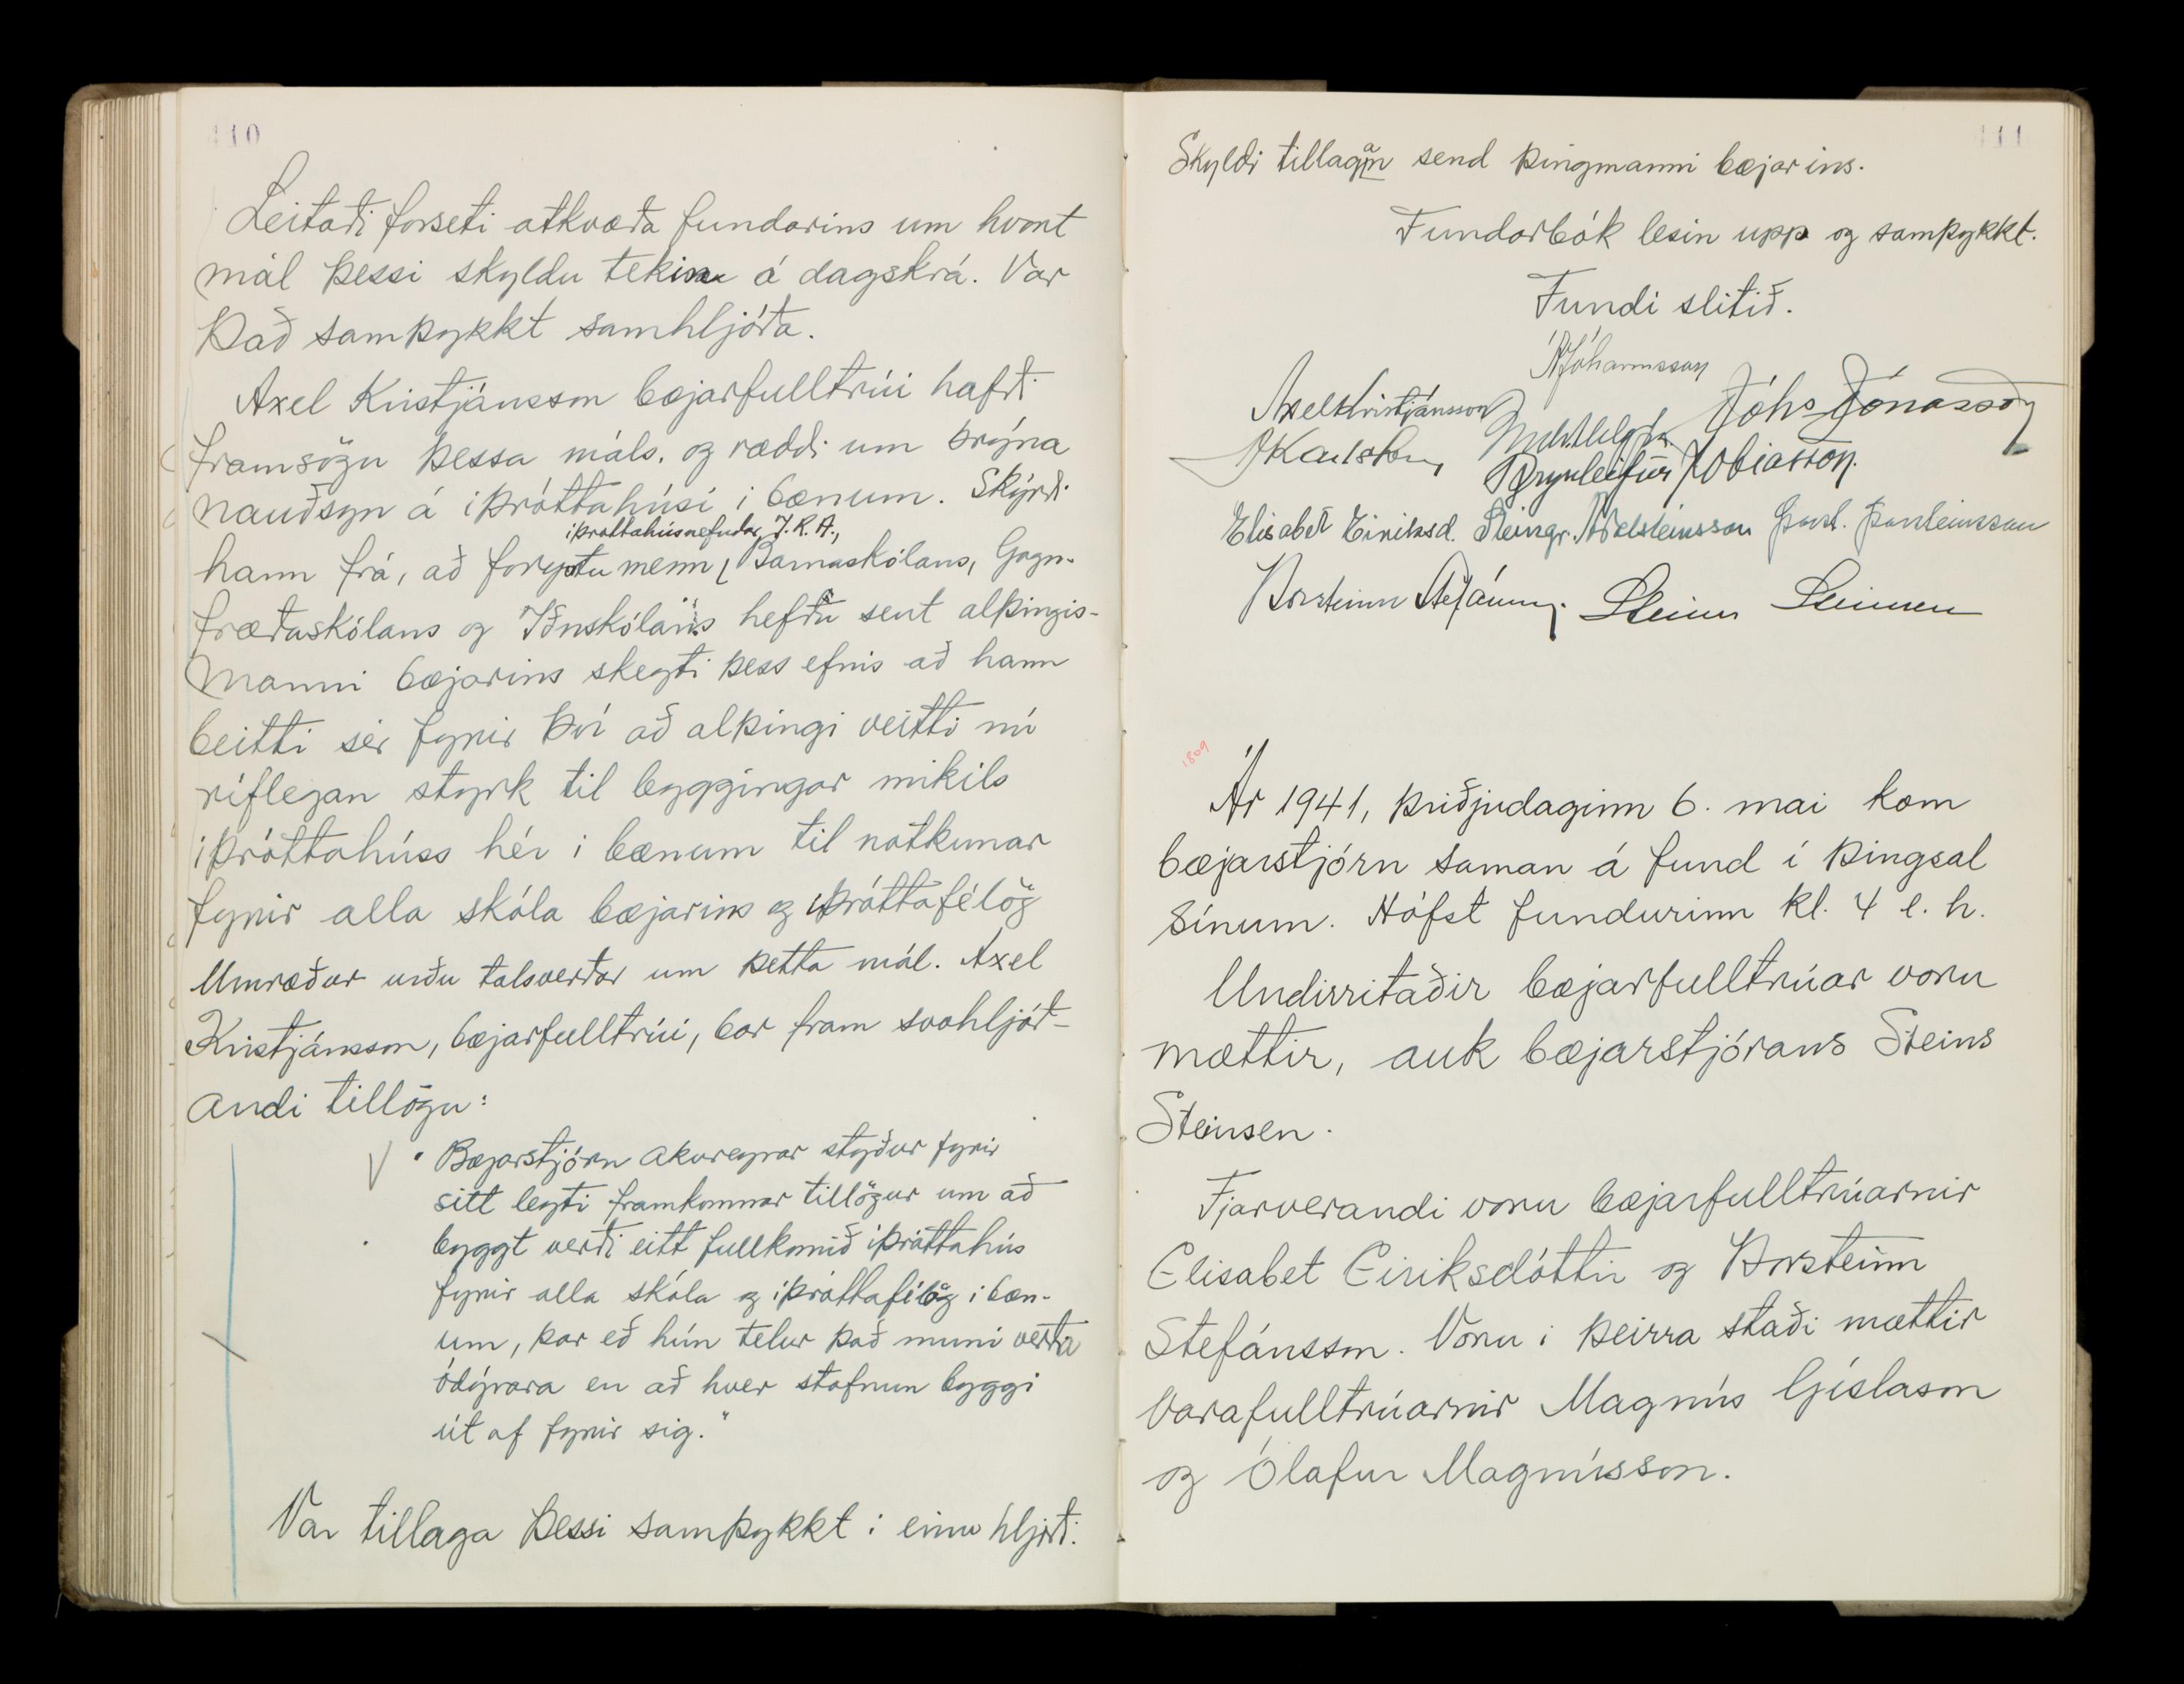 410
Leitaði forseti atkvæða fundarins um hvort
mál þessi skyldu tekin á dagskrá. Var
það samþykkt samhljóða.
Axel Kristjánsson bæjarfulltrúi hafði
framsögu þessa máls. og ræddi um brýna
nauðsyn á íþróttahúsi í bænum. Skýrði
íþróttahúsnefndar, Í.R.A.,
hann frá, að forystumenn Barnaskólans, Gagn-
fræðaskólans og Iðnskólans hefðu sent alþingis-
manni bæjarins skeyti þess efnis að hann
beitti sér fyrir því að alþingi veitti nú
ríflegan styrk til byggingar mikils
íþróttahúss hér í bænum til notkunar
fyrir alla skóla bæjarins og íþróttafélög
Umræður urðu talsverðar um þetta mál. Axel
Kristjánsson, bæjarfulltrúi, bar fram svohljóð-
andi tillögu:
"Bæjarstjórn Akureyrar styður fyrir
sitt leyti framkomnar tillögur um að
byggt verði eitt fullkomið íþróttahús
fyrir alla skóla og íþróttafélög í bæn-
um, þar eð hún telur það muni verða
ódýrara en að hver stofnun byggi
út af fyrir sig."
Var tillaga þessi samþykkt í einu hljóði.
411
Skyldi tillagan send þingmanni bæjarins.
Fundarbók lesin upp og samþykkt.
Fundi slitið.
Jóhannsson
Axel Kristjánsson Jóhs Jónasson
J Karlsson Brynleifur Tobiasson.
Elisabet Eiriksd. Steingr. Aðalsteinsson Þorst. Þorsteinsson
Þorsteinn Stefánss. Steinn Steinsen
1809
Ár 1941, þriðjudaginn 6. mai kom
bæjarstjórn saman á fund í þingsal
sínum. Hófst fundurinn kl. 4 e. h.
Undirritaðir bæjarfulltrúar voru
mættir, auk bæjarstjórans Steins
Steinsen.
Fjarverandi voru bæjarfulltrúarnir
Elisabet Eiriksdóttir og Þorsteinn
Stefánsson. Voru í þeirra staði mættir
varafulltrúarnir Magnús Gíslason
og Ólafur Magnússon.